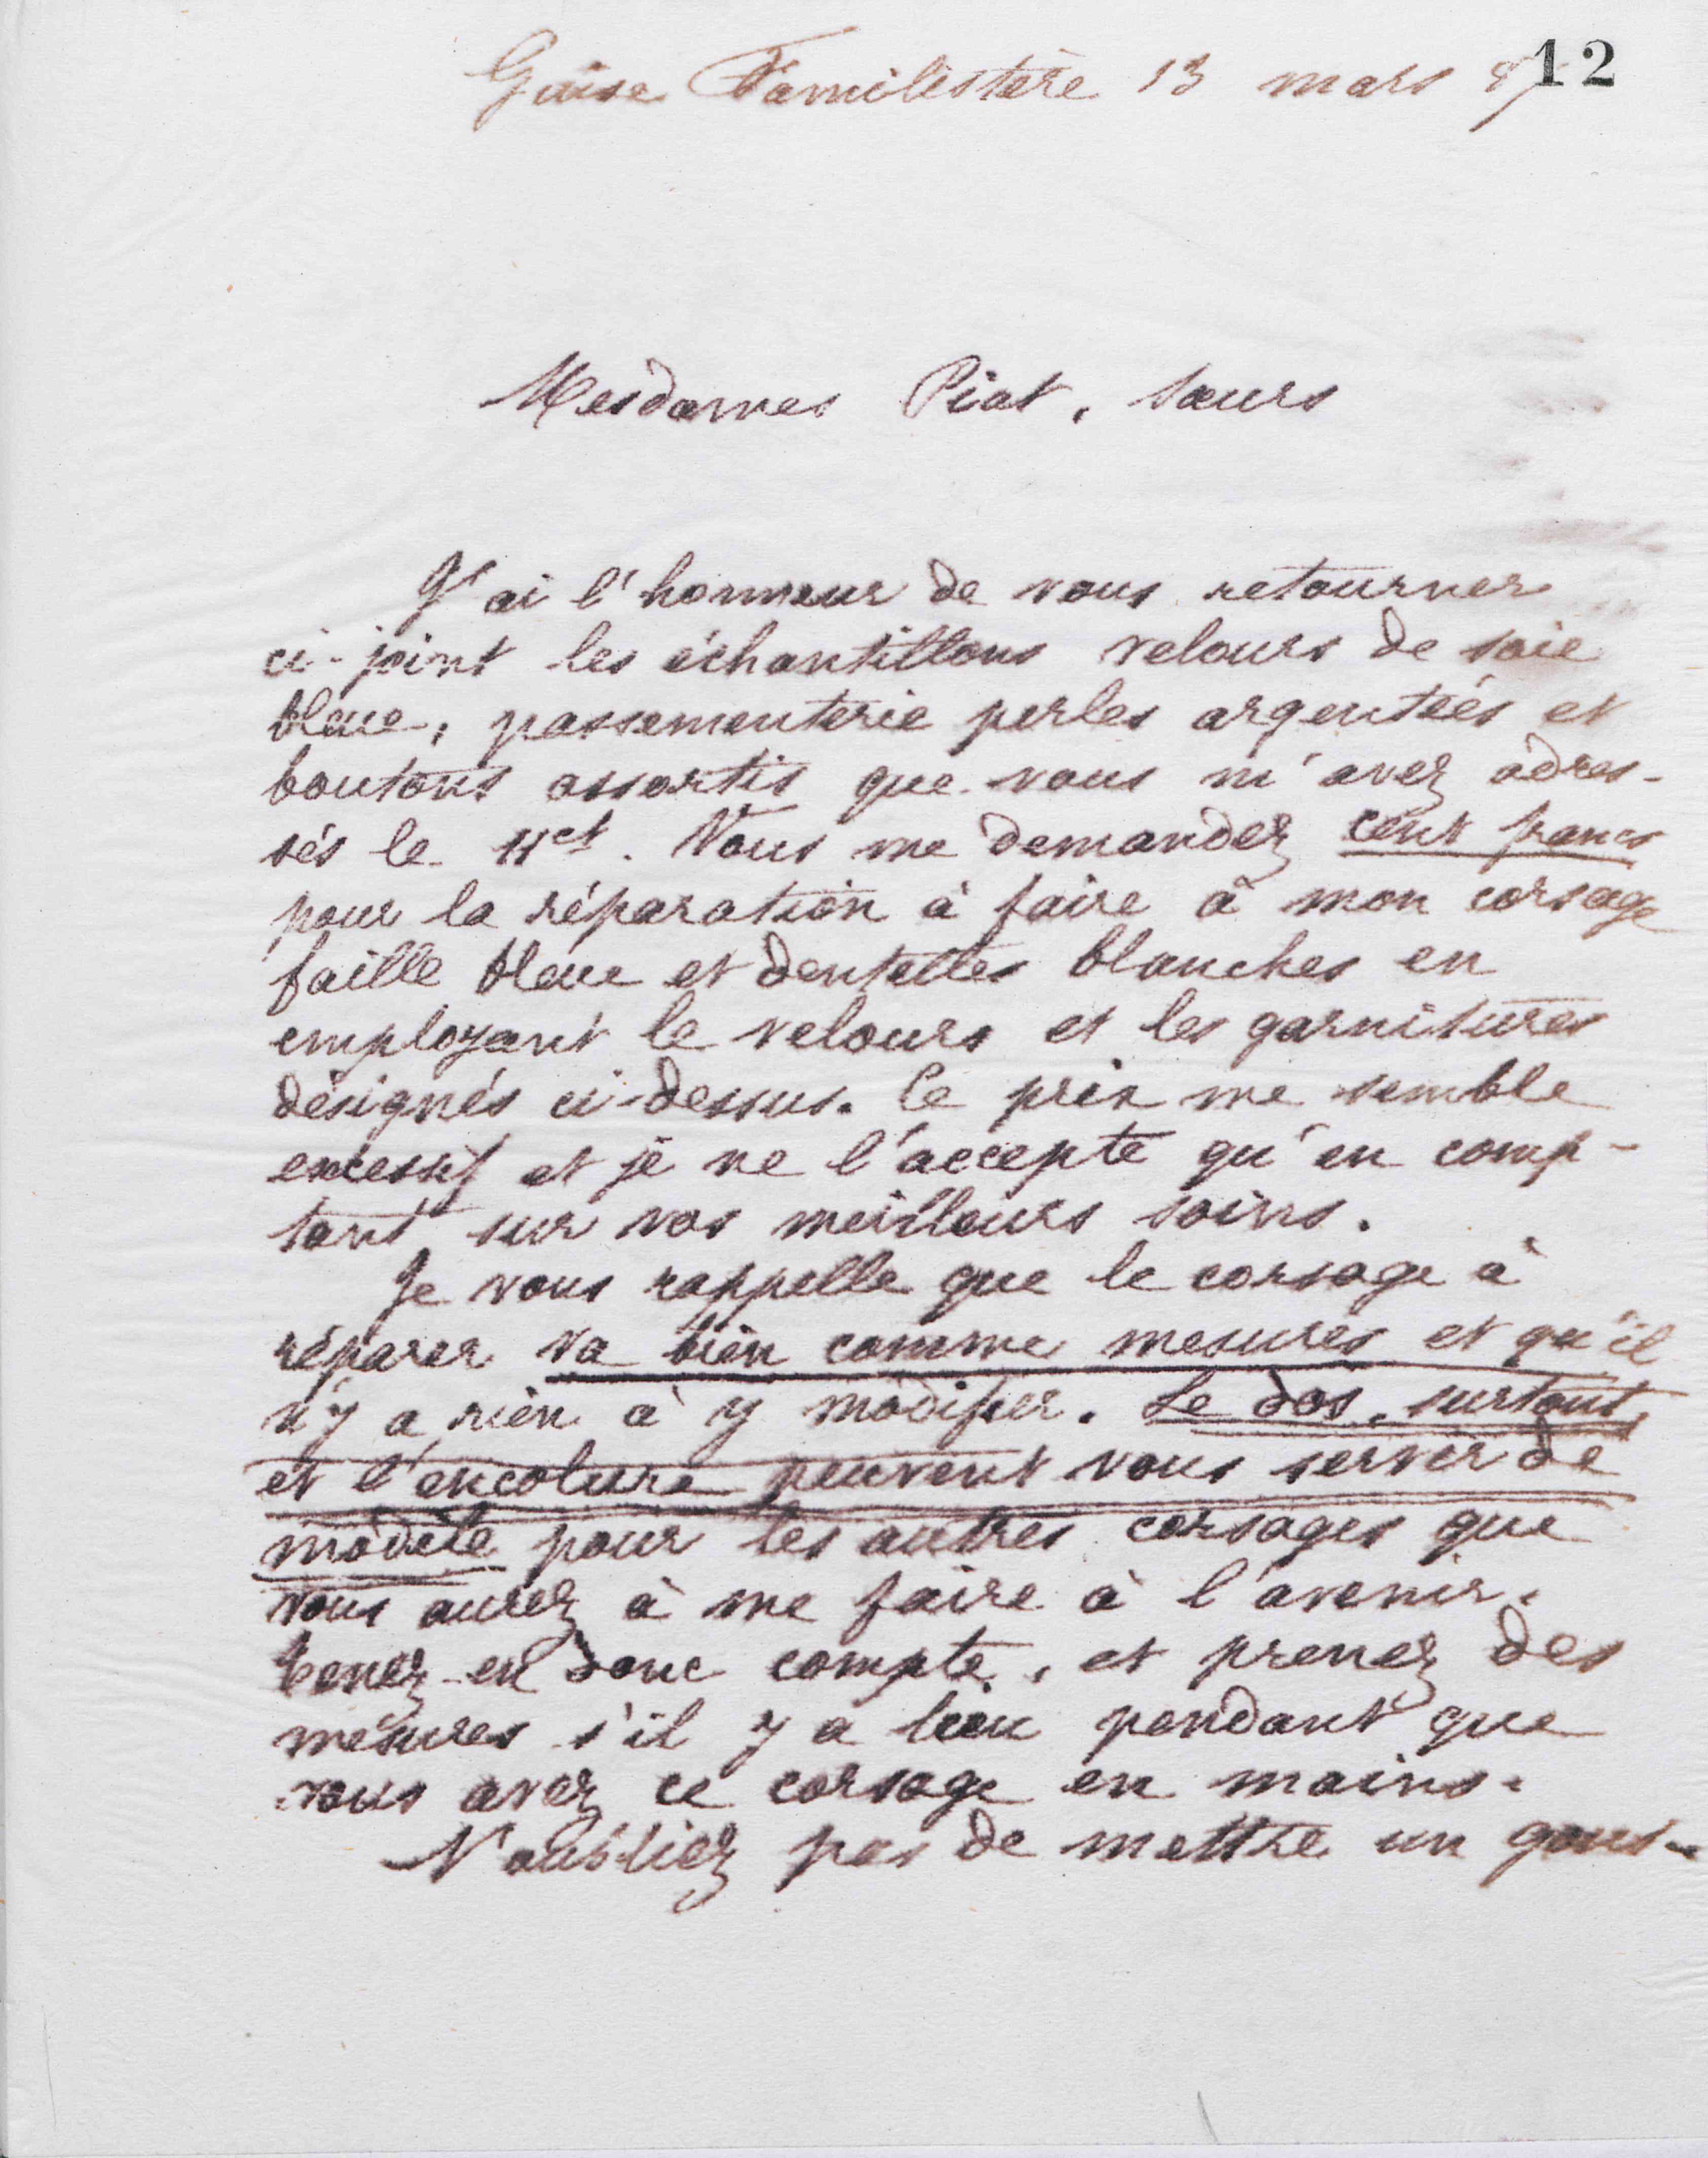 Guise Familistère 13 mars 8
12
Mesdames Piat, sœurs
J'ai l'honneur de vous retourner
ci-joint les échantillons velours de soie
bleue, passementerie perles argentées et
boutons assortis que vous m'avez adres-
sés le 11 ct. Vous me demandez cent francs
pour la réparation à faire à mon corsage
faille bleue et dentelles blanches en
employant le velours et les garnitures
désignés ci-dessus. Ce prix me semble
excessif et je ne l'accepte qu'en comp-
tant sur vos meilleurs soins.
Je vous rappelle que le corsage à
réparer va bien comme mesures et qu'il
n'y a rien à y modifier. Le dos, surtout,
et l'encolure peuvent vous servir de
modèle pour les autres corsages que
vous aurez à me faire à l'avenir.
tenez-en donc compte, et prenez des
mesures s'il y a lieu pendant que
vous avez ce corsage en mains.
N'oubliez pas de mettre un gous-